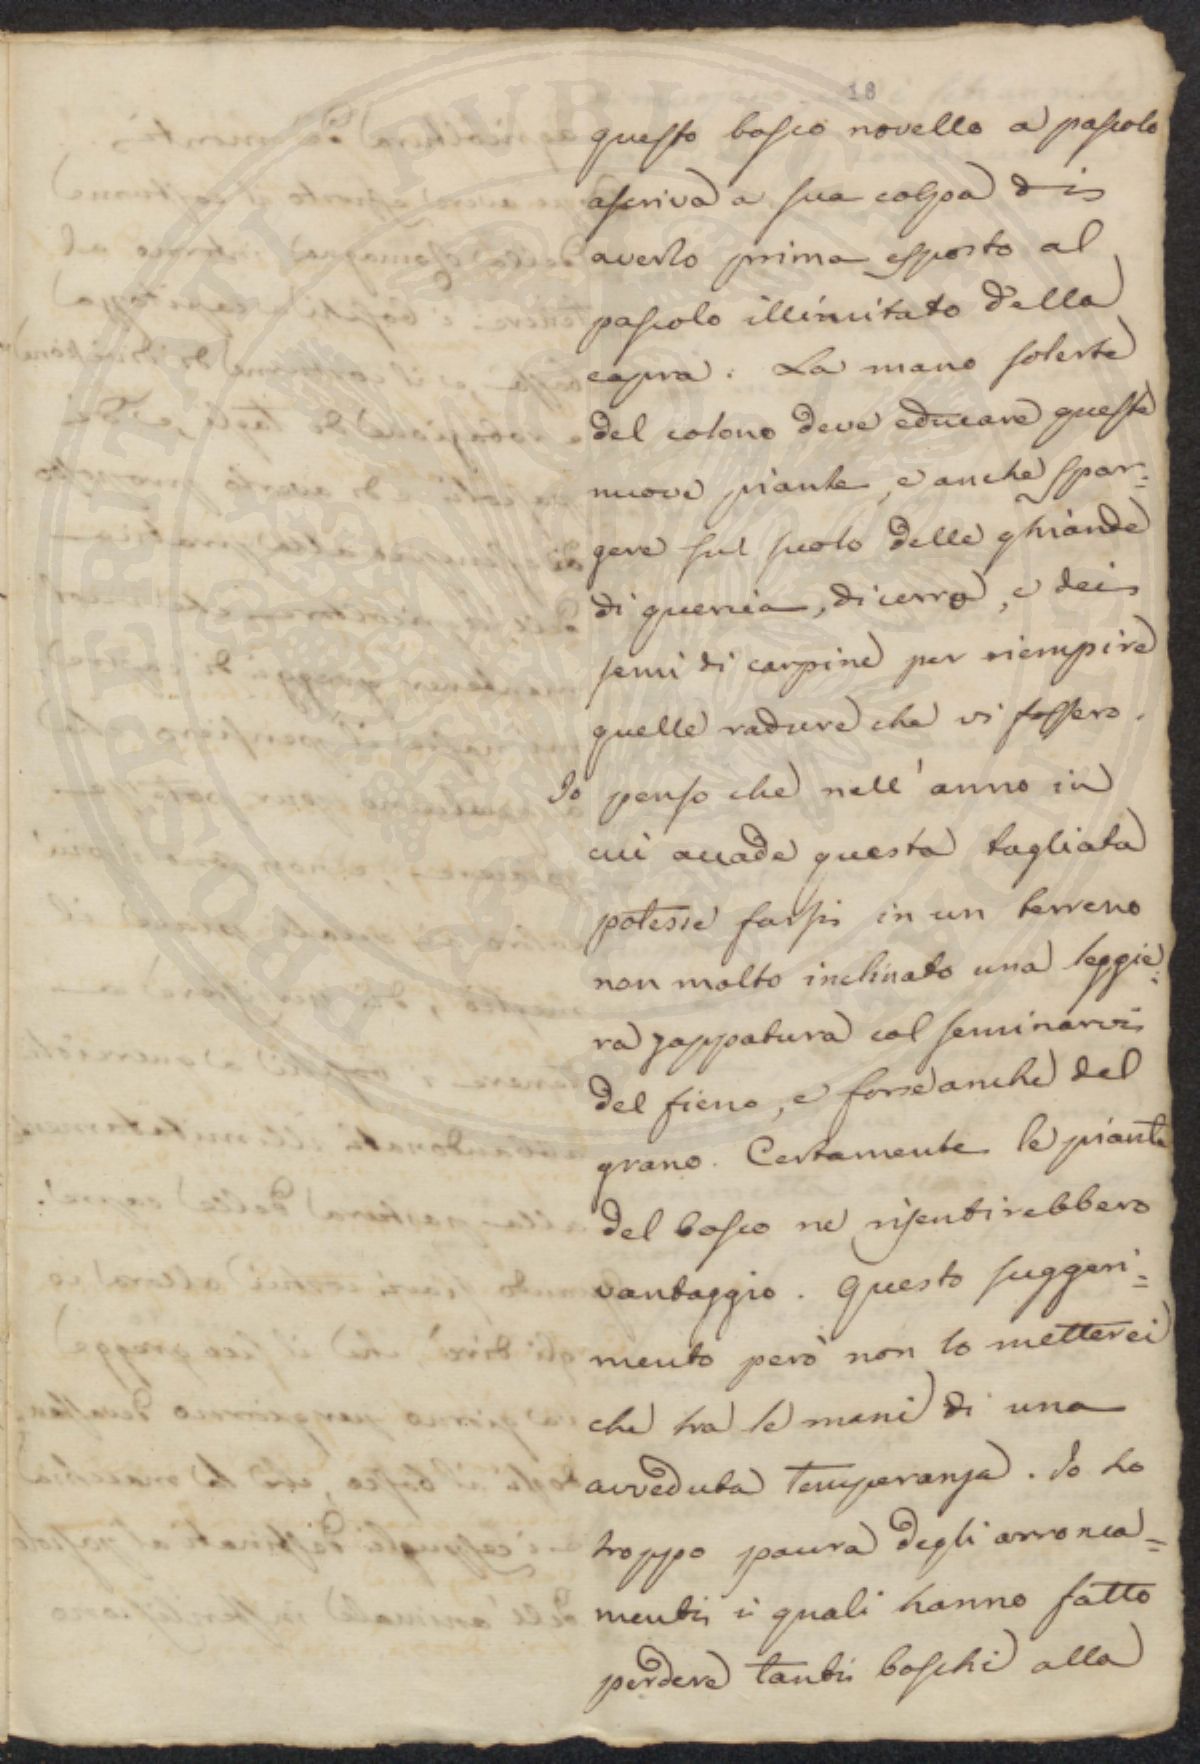 18
questo bosco novello a pascolo
ascriva a sua colpa di
averlo prima esposto al
pascolo illimitato della
capra. La mano solerte
del colono deve educare queste
nuove piante, e anche spar=
gere sul suolo delle ghiande
di quercia, di cerro, e dei
semi di carpine per riempire
quelle radure che vi fossero.
Io penso che nell'anno in
cui accade questa tagliata
potesse farsi in un terreno
non molto inclinato una leggie=
ra zappatura col seminarvi
del fieno, e forse anche del
grano. Certamente le piante
del bosco ne risentirebbero
vantaggio. Questo suggeri=
mento però non lo metterei
che tra le mani di una
avveduta temperanza. Io ho
troppo paura degli arronca=
menti i quali hanno fatto
perdere tanti boschi alla